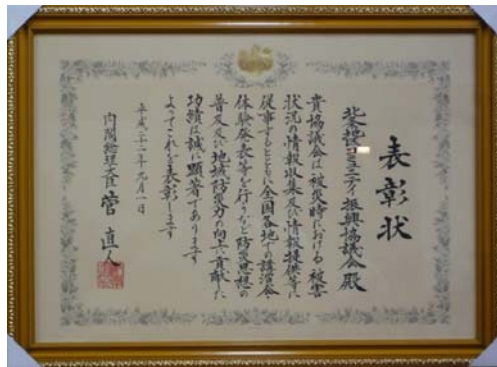 表彰状
北条地区コミュニティ振興協議会殿
貴協議会は被災時における被害
状況の情報収集及び情報提供等に
従事するとともに全国各地での講演会
体験発表等を行うなど防災思想の
普及及び地域防災力の向上に貢献した
功績は誠に顕著であります
よってこれを表彰します
平成二十二年九月一日
内閣総理大臣 菅直人